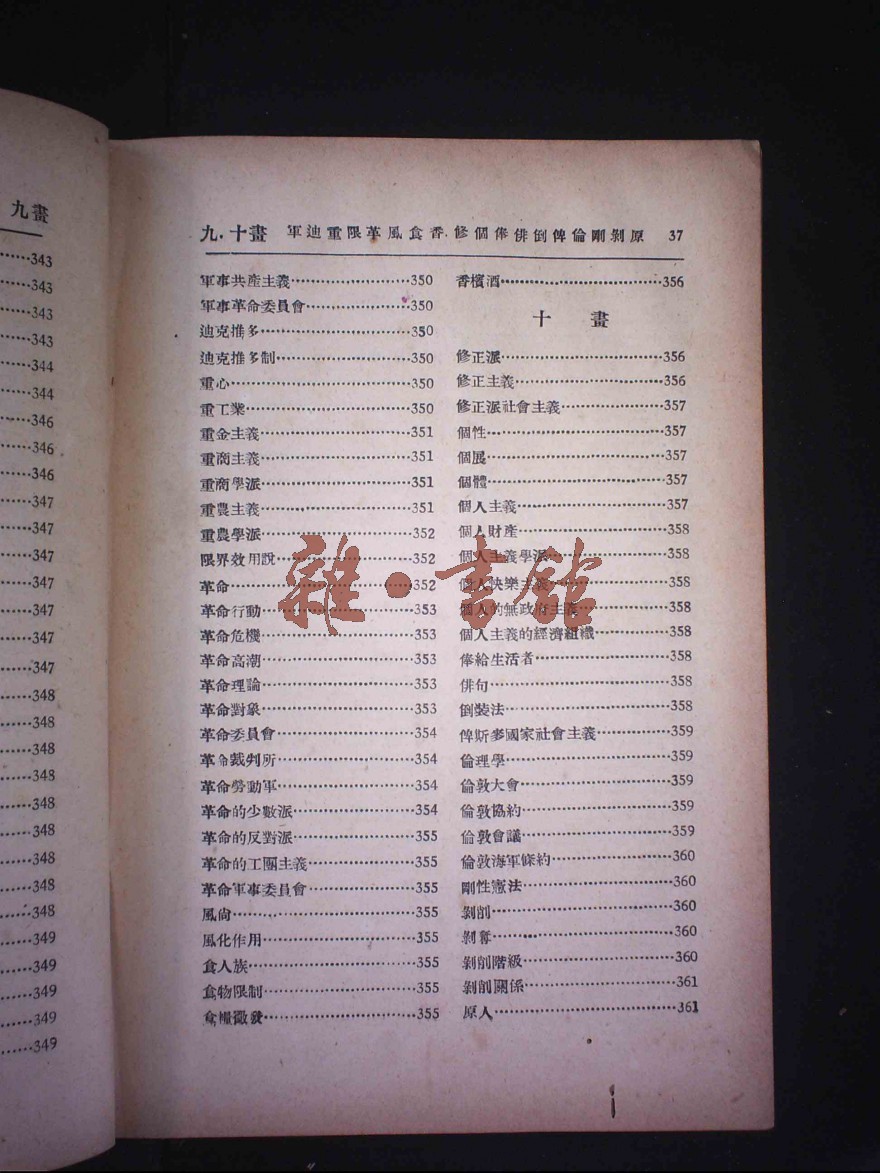 九畫
……343
……343
……343
……343
……344
……344
……346
……346
……346
……347
……347
……347
……347
……347
……347
……347
……348
……348
……348
……348
……348
……348
……348
……348
……348
……349
……349
……349
……349
……349
九·十畫 軍迪重限革風食香·修個俸俳倒俾倫剛剝原 37
軍事共產主義……350
軍事革命委員會……350
迪克推多……350
迪克推多制……350
重心……350
重工業……350
重金主義……351
重商主義……351
重商學派……351
重農主義……351
重農學派……352
限界效用說……352
革命……352
革命行動……353
革命危機……353
革命高潮……353
革命理論……353
革命對象……353
革命委員會……354
革命裁判所……354
革命勞動軍……354
革命的少數派……354
革命的反對派……355
革命的工團主義……355
革命軍事委員會……355
風尚……355
風化作用……355
食人族……355
食物限制……355
食糧徵發……355
香檳酒……356
十畫
修正派……356
修正主義……356
修正派社會主義……357
個性……357
個展……357
個體……357
個人主義……357
個人財產……358
個人主義學派……358
個人快樂主義……358
個人的無政府主義……358
個人主義的經濟組織……358
俸給生活者……358
俳句……358
倒裝法……358
俾斯麥國家社會主義……359
倫理學……359
倫敦大會……359
倫敦協約……359
倫敦會議……359
倫敦海軍條約……360
剛性憲法……360
剝削……360
剝奪……360
剝削階級……360
剝削關係……361
原人……361
雜·書館